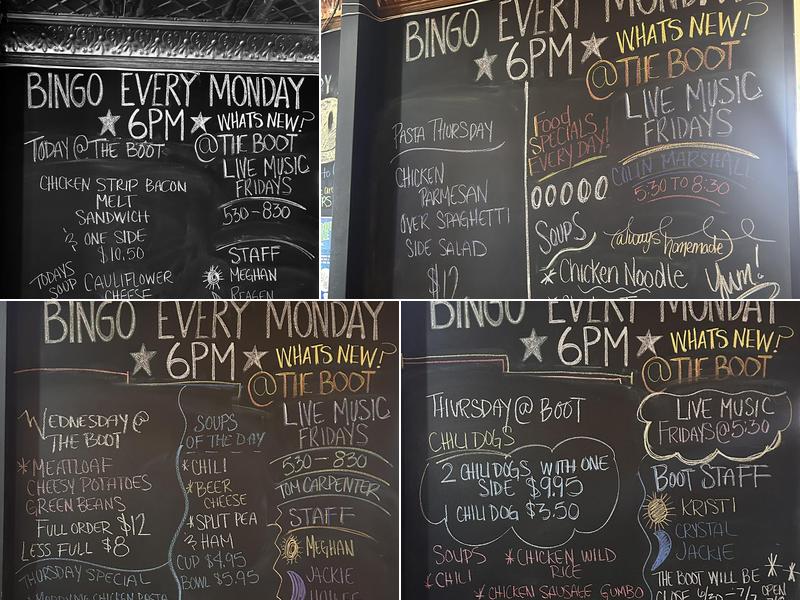 BINGO EVERY MONDAY
★ 6PM ★
WHATS NEW?
@ THE BOOT
LIVE MUSIC
FRIDAYS
530-830
STAFF
MEGHAN
REAGEN
TODAY @ THE BOOT
CHICKEN STRIP BACON
MELT
SANDWICH
& ONE SIDE
$10.50
TODAYS
SOUP
CAULIFLOWER
CHEESE
BINGO EVERY MONDAY
★ 6PM ★
WHATS NEW?
@ THE BOOT
LIVE MUSIC
FRIDAYS
COLIN MARSHALL
5:30 TO 8:30
PASTA THURSDAY
CHICKEN
PARMESAN
OVER SPAGHETTI
SIDE SALAD
$12
Food
SPECIALS
EVERY DAY!
SOUPS
(always homemade)
*Chicken Noodle
Yum!
BINGO EVERY MONDAY
★ 6PM ★
WHATS NEW?
@ THE BOOT
LIVE MUSIC
FRIDAYS
530-830
TOM CARPENTER
STAFF
MEGHAN
JACKIE
WEDNESDAY @
THE BOOT
*MEATLOAF
CHEESY POTATOES
GREEN BEANS
FULL ORDER $12
LESS FULL $8
THURSDAY SPECIAL
CHICKEN PASTA
SOUPS
OF THE DAY
*CHILI
*BEER
CHEESE
*SPLIT PEA
& HAM
CUP $4.95
BOWL $5.95
BINGO EVERY MONDAY
★ 6PM ★
WHATS NEW?
@ THE BOOT
LIVE MUSIC
FRIDAYS @ 5:30
BOOT STAFF
KRISTI
CRYSTAL
JACKIE
THE BOOT WILL BE
CLOSE 6/30-7/7
OPEN
THURSDAY @ BOOT
CHILI DOGS
2 CHILI DOGS WITH ONE
SIDE $9.95
1 CHILI DOG $3.50
SOUPS
*CHILI
*CHICKEN WILD
RICE
*CHICKEN SAUSAGE GUMBO